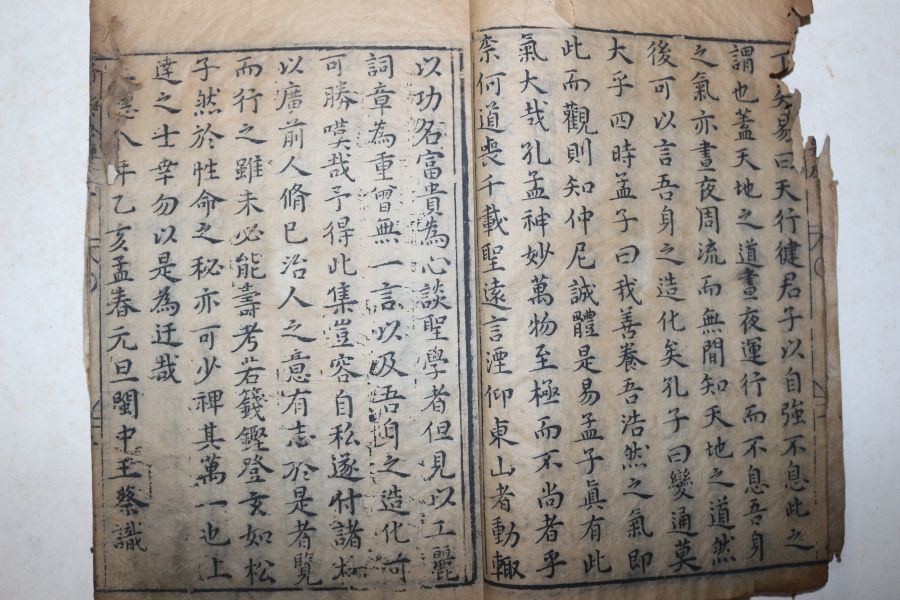 矣易曰天行健君子以自強不息此之
謂也蓋天地之道晝夜運行而不息吾身
之氣亦晝夜周流而無間知天地之道然
後可以言吾身之造化矣孔子曰變通莫
大乎四時孟子曰我善養吾浩然之氣即
此而觀則知仲尼誠體是易孟子眞有此
氣大哉孔孟神妙萬物至極而不尚者乎
柰何道喪千載聖遠言湮仰東山者動輙
以功名富貴為心談聖學者但見以工麗
詞章為重曾無一言以及吾自之造化可
可勝嘆哉予得此集豈容自私遂付諸梓
以廣前人脩已治人之意有志於是者覽
而行之雖未必能壽考若籛鏗登玄如松
子然於性命之秘亦可少裨其萬一也上
達之士幸勿以是為迂哉
年乙亥孟春元旦閩中王蔡識